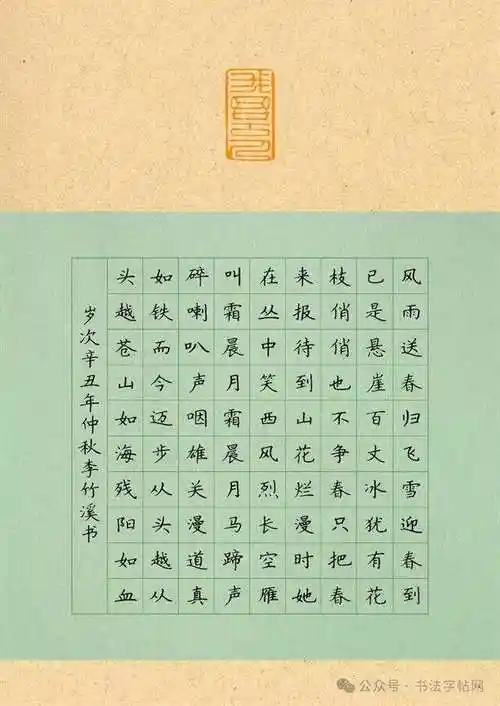 风雨送春归飞雪迎春到
已是悬崖百丈冰犹有花
枝俏俏也不争春只把春
来报待到山花烂漫时她
在丛中笑西风烈长空雁
叫霜晨月霜晨月马蹄声
碎喇叭声咽雄关漫道真
如铁而今迈步从头越从
头越苍山如海残阳如血
岁次辛丑年仲秋李竹溪书
公众号·书法字帖网